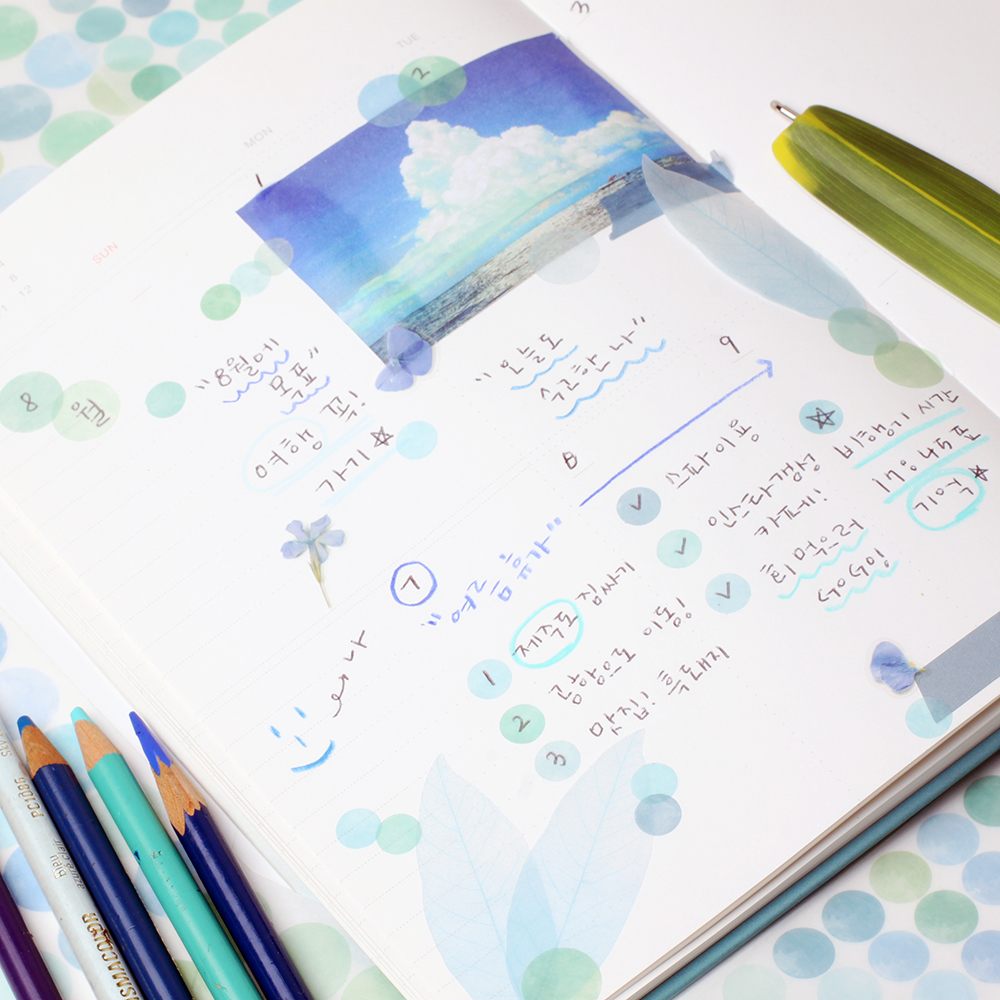 TUE
2
3
MON
1
SUN
8
월
"8월에
목표"
꼭!
여행
가기☆
"오늘도
수고한 나"
9
8
7
"여름 휴가"
1 제주도 짐싸기
2 공항으로 이동!
3 맛집! 흑돼지
✓ 스파 이용
✓ 인스타감성
카페!
✓ 회 먹으러
GoGo!
☆ 비행기 시간
PC1086